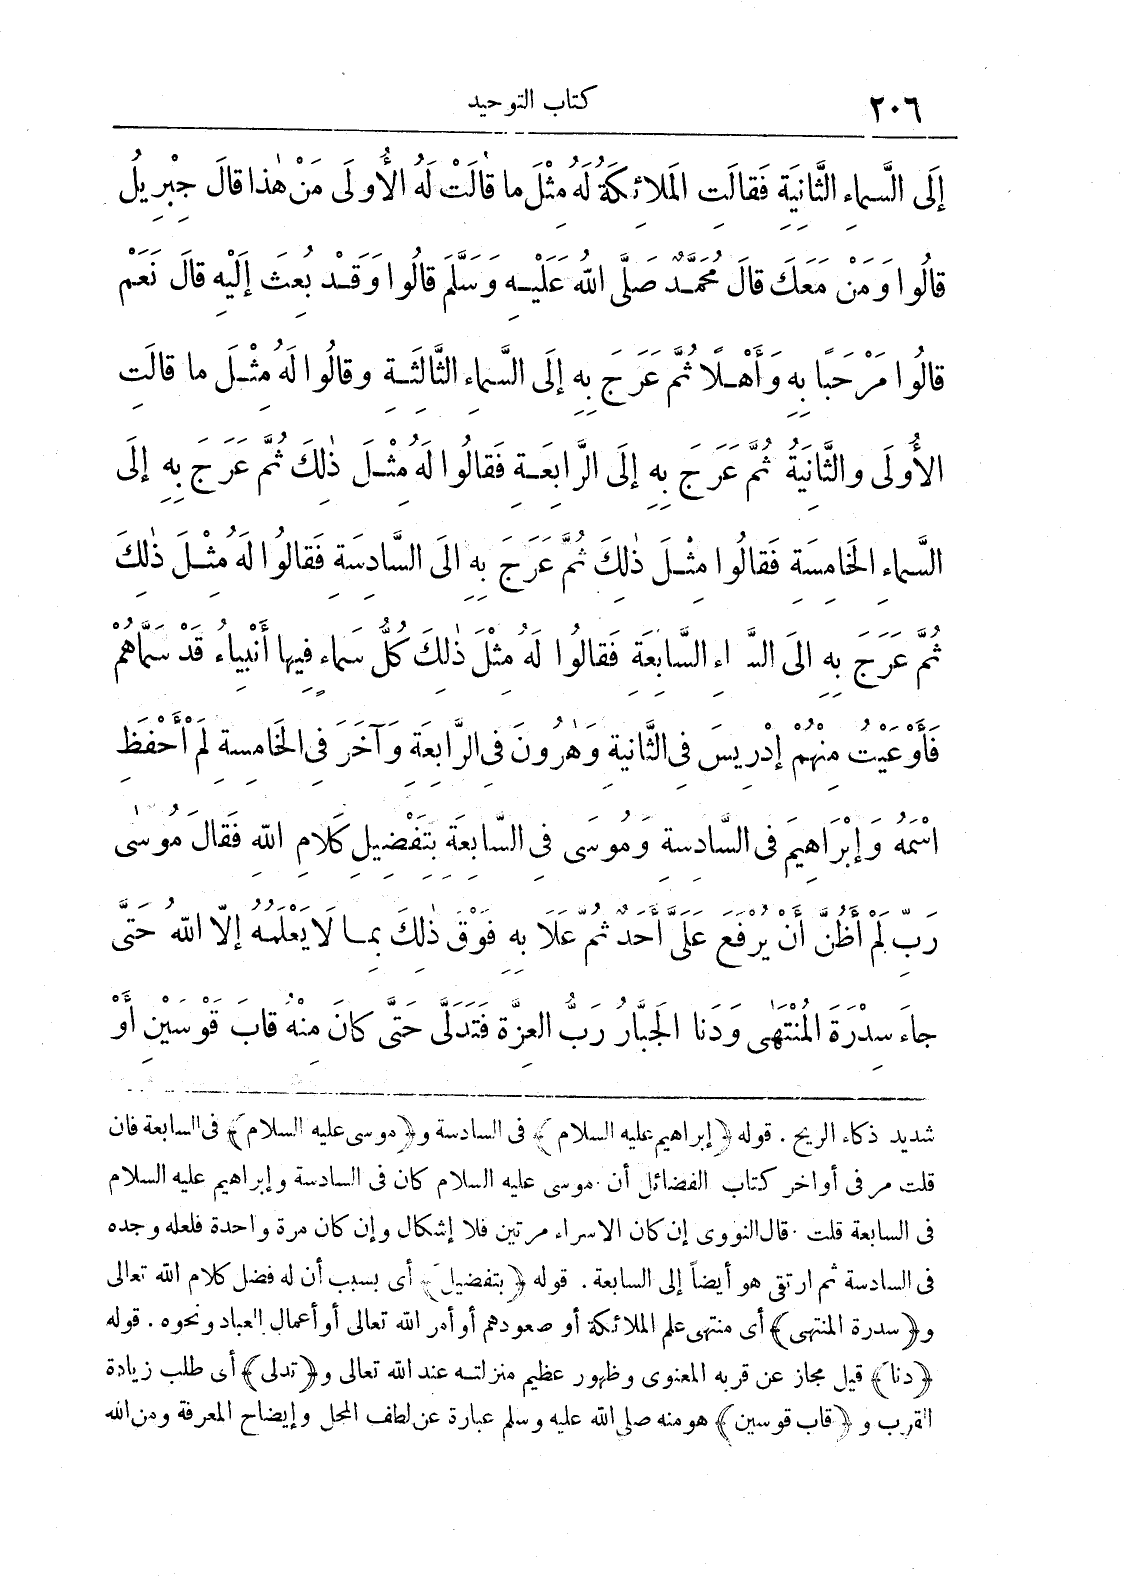 ٢٠٦ كتاب التوحيد
إِلَى السَّمَاءِ الثَّانِيَةِ فَقَالَتِ الْمَلَائِكَةُ لَهُ مِثْلَ مَا قَالَتْ لَهُ الأُولَى مَنْ هٰذا قَالَ جِبْرِيلُ
قالُوا وَمَنْ مَعَكَ قَالَ مُحَمَّدٌ صَلَّى اللهُ عَلَيْهِ وَسَلَّمَ قالُوا وَقَدْ بُعِثَ إِلَيْهِ قَالَ نَعَمْ
قالُوا مَرْحَبًا بِهِ وَأَهْلًا ثُمَّ عَرَجَ بِهِ إِلَى السَّمَاءِ الثَّالِثَةِ وقالُوا لَهُ مِثْلَ ما قالَتِ
الأُولَى والثَّانِيَةُ ثُمَّ عَرَجَ بِهِ إِلَى الرَّابِعَةِ فَقالُوا لَهُ مِثْلَ ذٰلِكَ ثُمَّ عَرَجَ بِهِ إِلَى
السَّمَاءِ الخَامِسَةِ فَقالُوا مِثْلَ ذٰلِكَ ثُمَّ عَرَجَ بِهِ الَى السَّادِسَةِ فَقالُوا لَهُ مِثْلَ ذٰلِكَ
ثُمَّ عَرَجَ بِهِ الَى السَّمَاءِ السَّابِعَةِ فَقالُوا لَهُ مِثْلَ ذٰلِكَ كُلُّ سَمَاءٍ فِيها أَنْبِياءُ قَدْ سَمَّاهُمْ
فَأَوْعَيْتُ مِنْهُمْ إِدْرِيسَ فِى الثَّانِيَةِ وَهٰرُونَ فِى الرَّابِعَةِ وَآخَرَ فِى الخَامِسَةِ لَمْ أَحْفَظِ
اسْمَهُ وَإِبْرَاهِيمَ فِى السَّادِسَةِ وَمُوسَى فِى السَّابِعَةِ بِتَفْضِيلِ كَلَامِ اللهِ فَقَالَ مُوسٰى
رَبِّ لَمْ أَظُنَّ أَنْ يُرْفَعَ عَلَىَّ أَحَدٌ ثُمَّ عَلَا بِهِ فَوْقَ ذٰلِكَ بِمَا لَا يَعْلَمُهُ إِلَّا اللهُ حَتَّى
جاءَ سِدْرَةَ المُنْتَهَى وَدَنا الجَبَّارُ رَبُّ العِزَّةِ فَتَدَلَّى حَتَّى كانَ مِنْهُ قابَ قَوْسَيْنِ أَوْ
شديد ذكاء الريح . قوله ﴿إبراهيم عليه السلام﴾ فى السادسة و﴿موسى عليه السلام﴾ فى السابعة فان
قلت مر فى أواخر كتاب الفضائل أن موسى عليه السلام كان فى السادسة وإبراهيم عليه السلام
فى السابعة قلت قال النووى إن كان الاسراء مرتين فلا إشكال وإن كان مرة واحدة فلعله وجده
فى السادسة ثم ارتقى هو أيضاً إلى السابعة . قوله ﴿بتفضيل﴾ أى بسبب أن له فضل كلام الله تعالى
و﴿سدرة المنتهى﴾ أى منتهى علم الملائكة أو صعودهم أو أمر الله تعالى أو أعمال العباد ونحوه . قوله
﴿دنا﴾ قيل مجاز عن قربه المعنوى وظهور عظيم منزلته عند الله تعالى و﴿تدلى﴾ أى طلب زيادة
القرب و﴿قاب قوسين﴾ هو منه صلى الله عليه وسلم عبارة عن لطف المحل وإيضاح المعرفة ومن الله